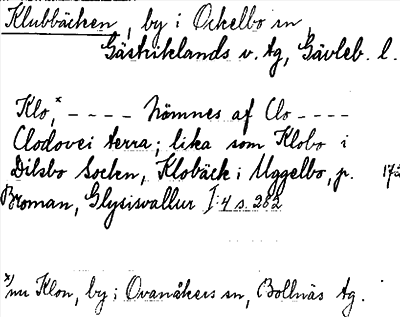 Klubbäcken, by i Ockelbo sn,
Gästriklands v. tg, Gävleb. l.
Klo,* ---- Nömnes af Clo ----
Clodovei terra; lika som Klobo i
Dilsbo Socken, Klobäck i Uggelbo, p. 172
Broman, Glysisvallur I:4 s. 282
*)nu Klon, by i Ovanåkers sn, Bollnäs tg.